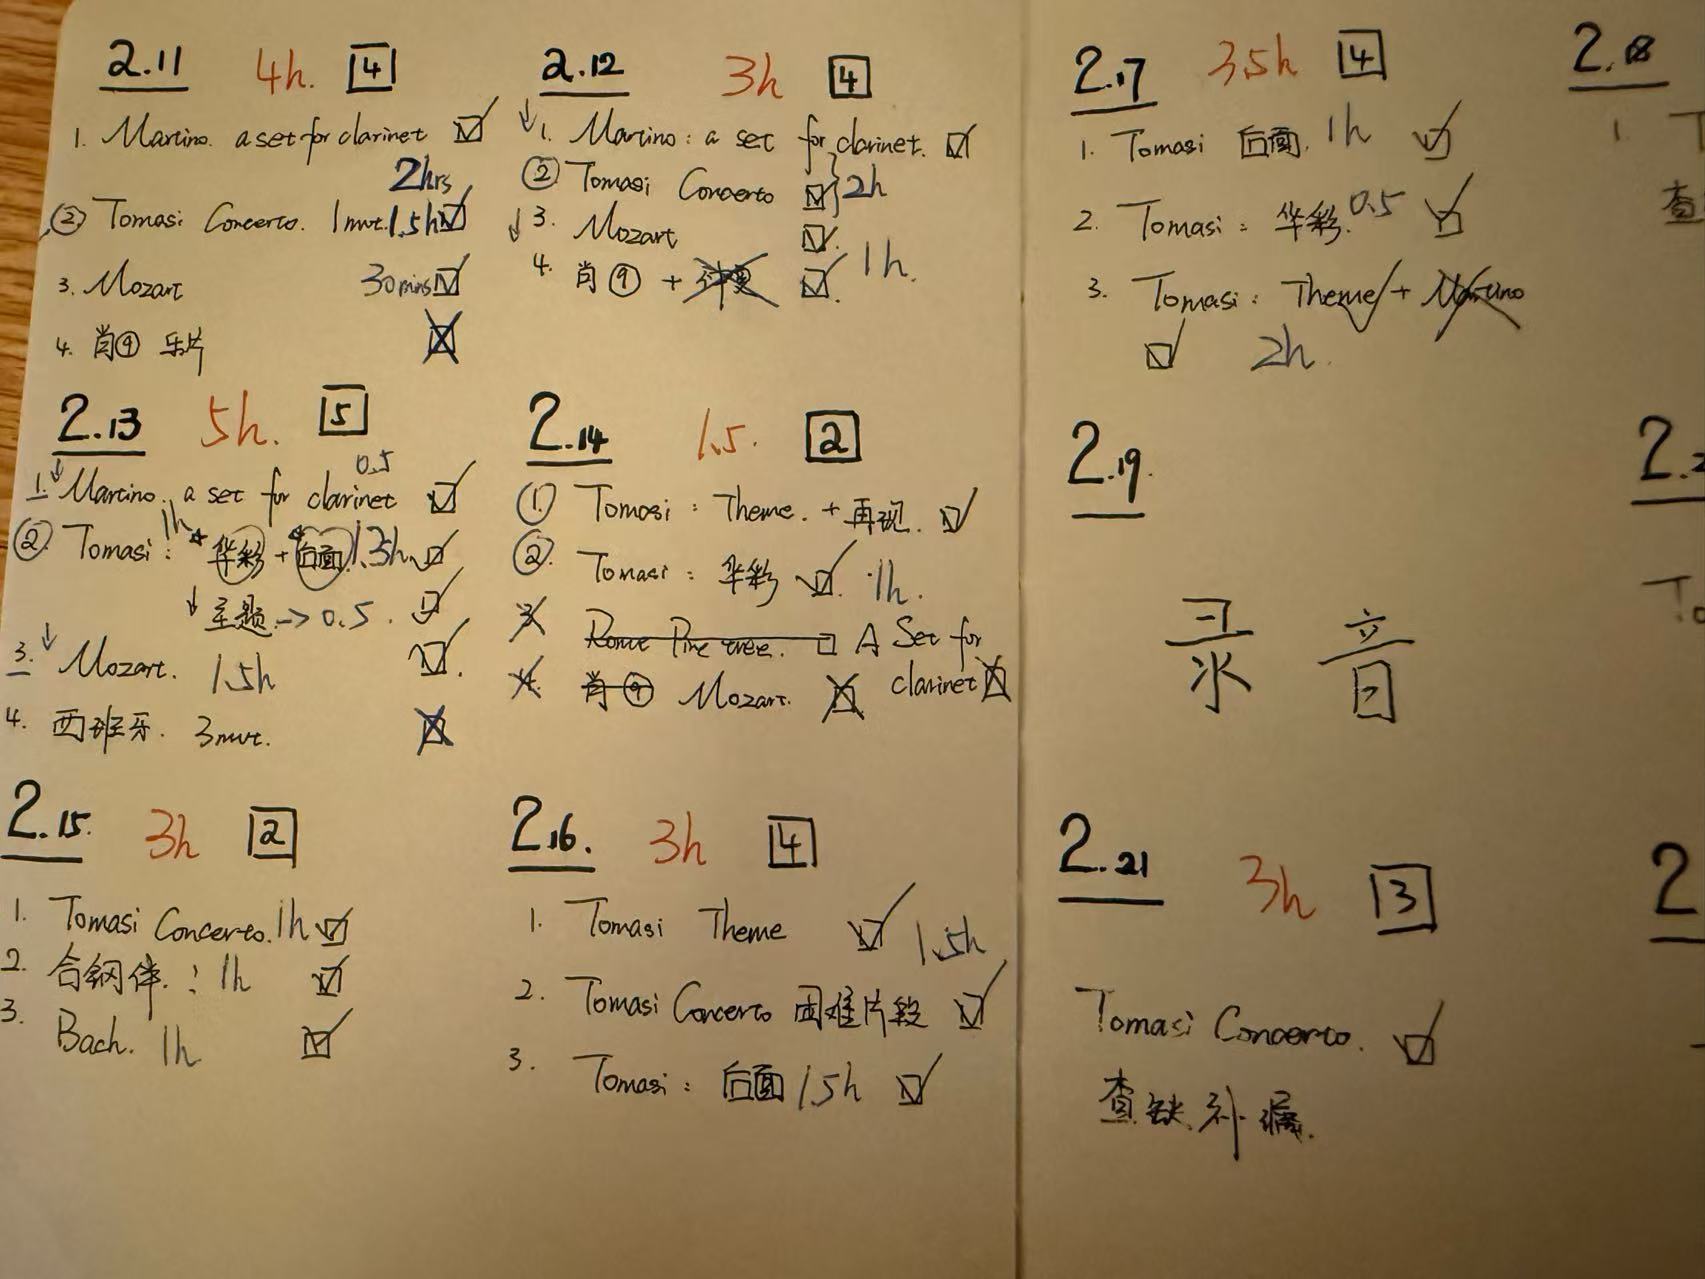 2.11 4h. 4
1. Martino. a set for clarinet
2hrs
② Tomasi Concerto. 1mvt. 1.5h
3. Mozart 30mins
4. 肖⑨ 乐片
2.12 3h 4
↓1. Martino: a set for clarinet.
② Tomasi Concerto } 2h
↓3. Mozart
4. 肖⑨ + 1h.
2.13 5h. 5
0.5
1.↓ Martino. a set for clarinet
② Tomasi: 1h 华彩 + 后面 1.5h
↓ 主题 -> 0.5.
3.↓ Mozart. 1.5h
4. 西班牙. 3mvt.
2.14 1.5. 2
①. Tomasi: Theme. + 再现.
②. Tomasi: 华彩 1h.
3. Rome Pine tree. A Set for clarinet
4. 肖⑨ Mozart.
2.15. 3h 2
1. Tomasi Concerto. 1h
2. 合钢伴.: 1h
3. Bach. 1h
2.16. 3h 4
1. Tomasi Theme 1.5h
2. Tomasi Concerto 困难片段
3. Tomasi: 后面 1.5h
2.17 3.5h 4
1. Tomasi 后面. 1h
2. Tomasi: 华彩. 0.5
3. Tomasi: Theme + Martino
2h.
2.18
1. T
查
2.19.
录音
2.2
To
2.21 3h 3
Tomasi Concerto.
查缺补漏.
2